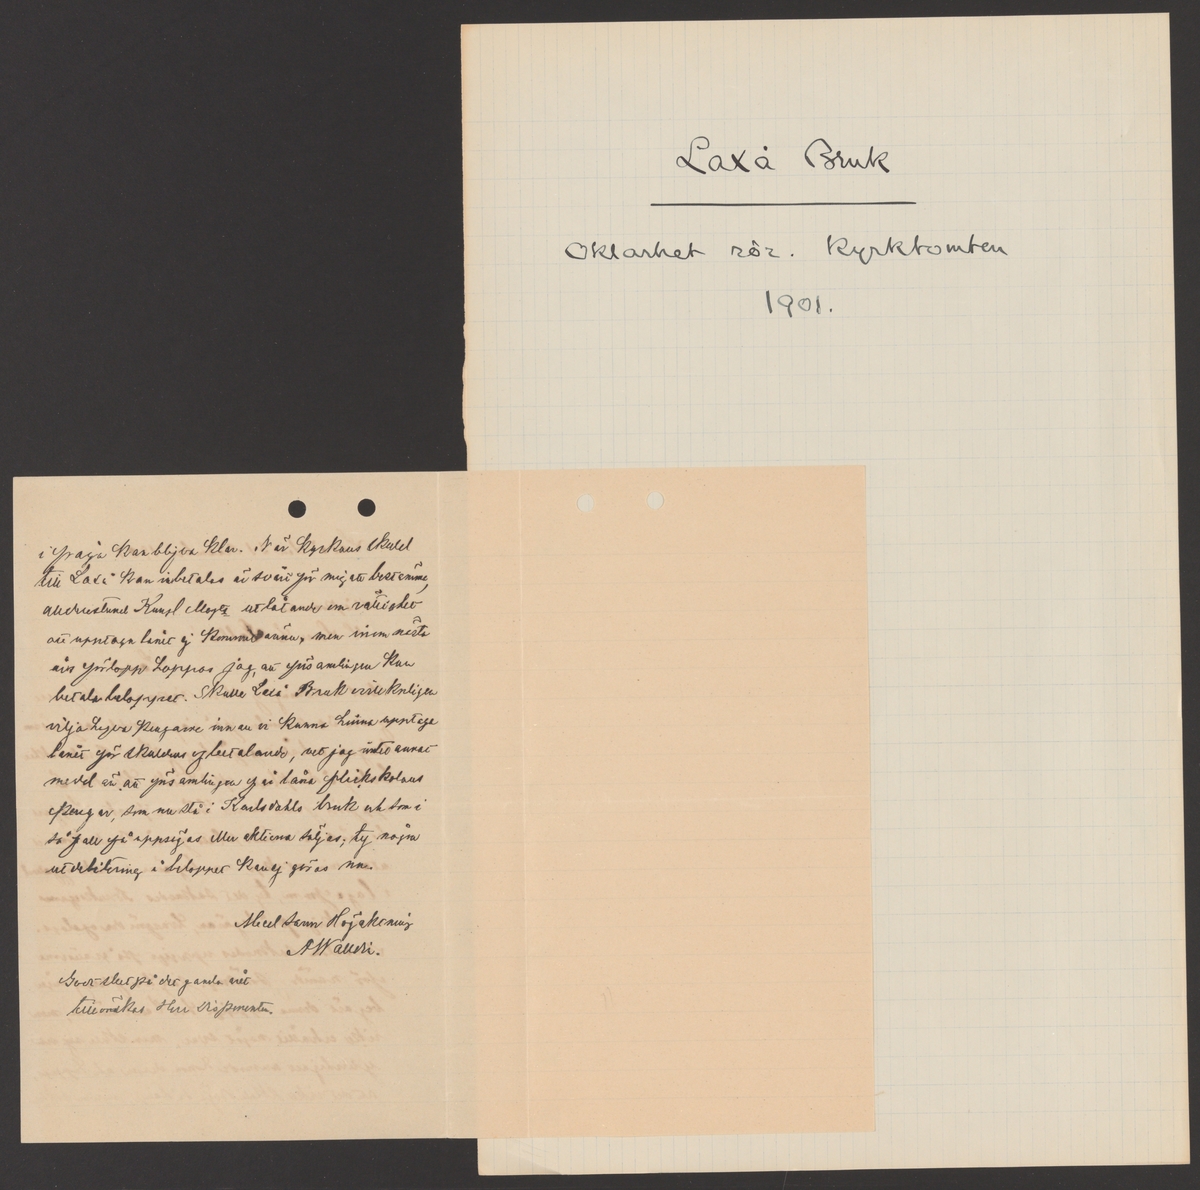 Laxå Bruk
Oklarhet rör. Kyrktomten
1901.
i fråga kan blifva klar. När kyrkans skuld
till Laxå kan inbetalas är svårt för mig att bestämma,
alldenstund Kungl Majts utlåtande om rättighet
att upptaga lånet ej kommit ännu, men inom nästa
års förlopp hoppas jag, att församlingen kan
betala beloppet. Skulle Laxå Bruk ovillkorligen
vilja hafva pengarne innan vi kunna hinna upptaga
lånet för skuldens gäldande, vet jag intet annat
medel än att församlingen får låna flickskolans
pengar, som nu stå i Karlsdahls bruk och som i
så fall få uppsägas eller aktierna säljas; ty någon
utdebitering å beloppet kan ej göras nu.
Med sann Högaktning
A Wallin.
Godt slut på det gamla året
tillönskas Herr Disponenten.